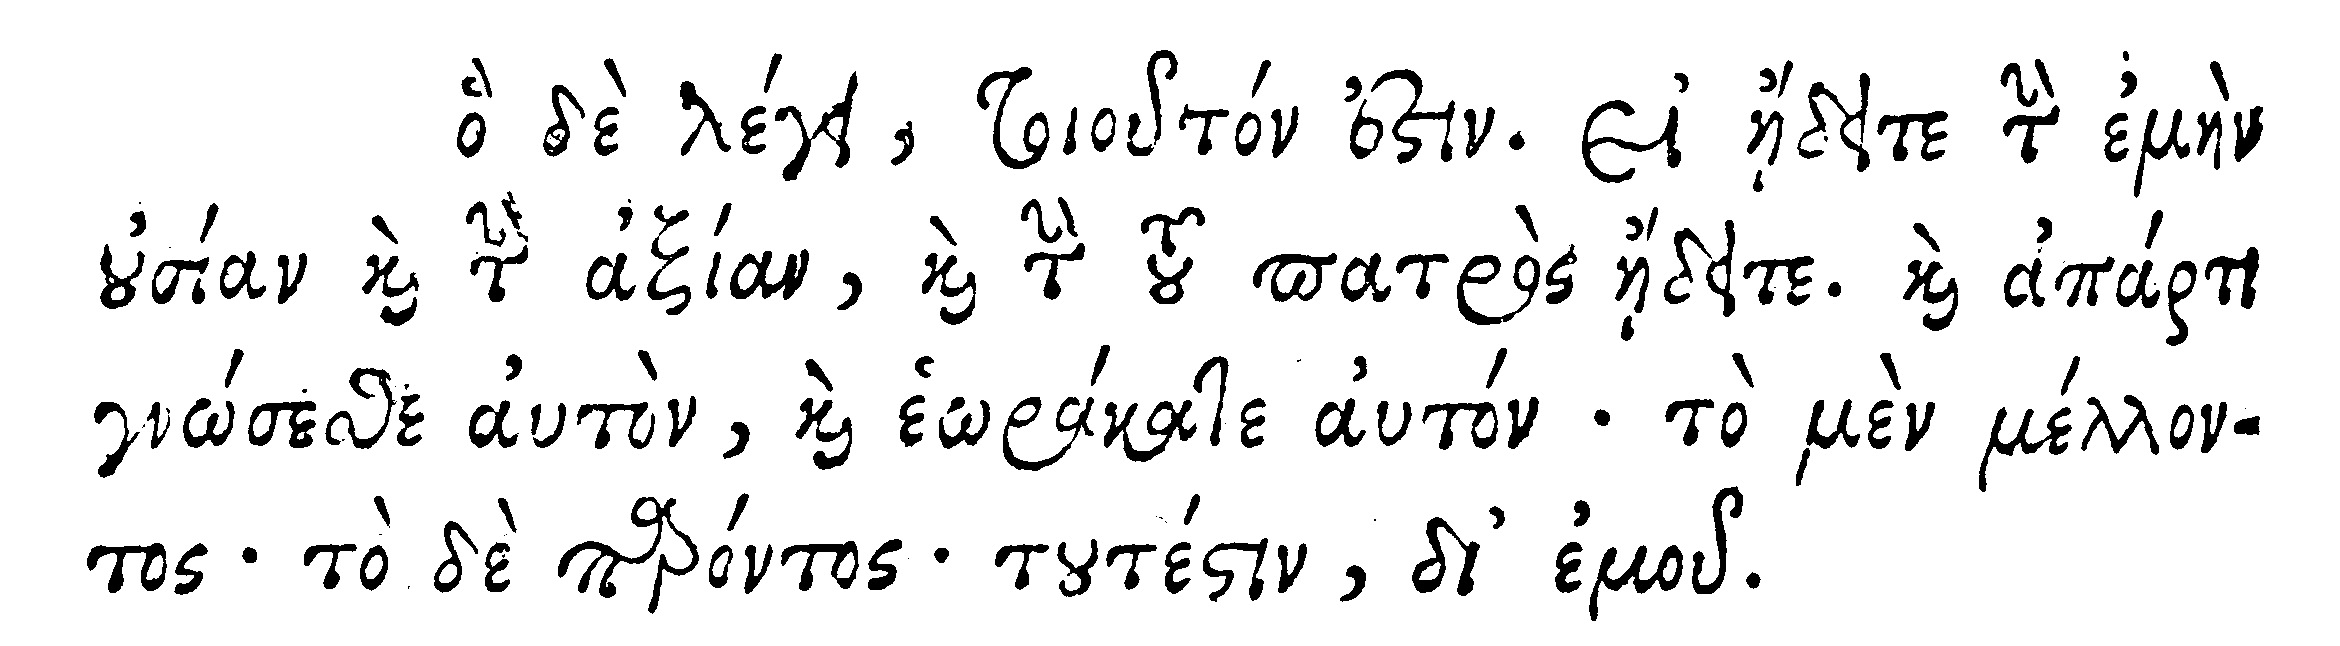 ὃ δὲ λέγει, τοιοῦτόν ἐστιν. Εἰ ᾔδειτε τὴν ἐμὴν
οὐσίαν καὶ τὴν ἀξίαν, καὶ τὴν τοῦ πατρὸς ᾔδειτε. καὶ ἀπάρτι
γνώσεσθε αὐτὸν, καὶ ἑωράκατε αὐτόν · τὸ μὲν μέλλον-
τος · τὸ δὲ παρόντος · τουτέστιν, δι' ἐμοῦ.